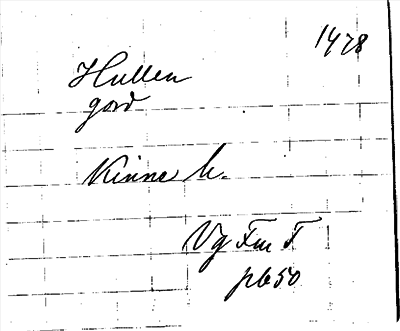 1478
Hullen
gord
Kinne h.
Vg Fm T
pb 50